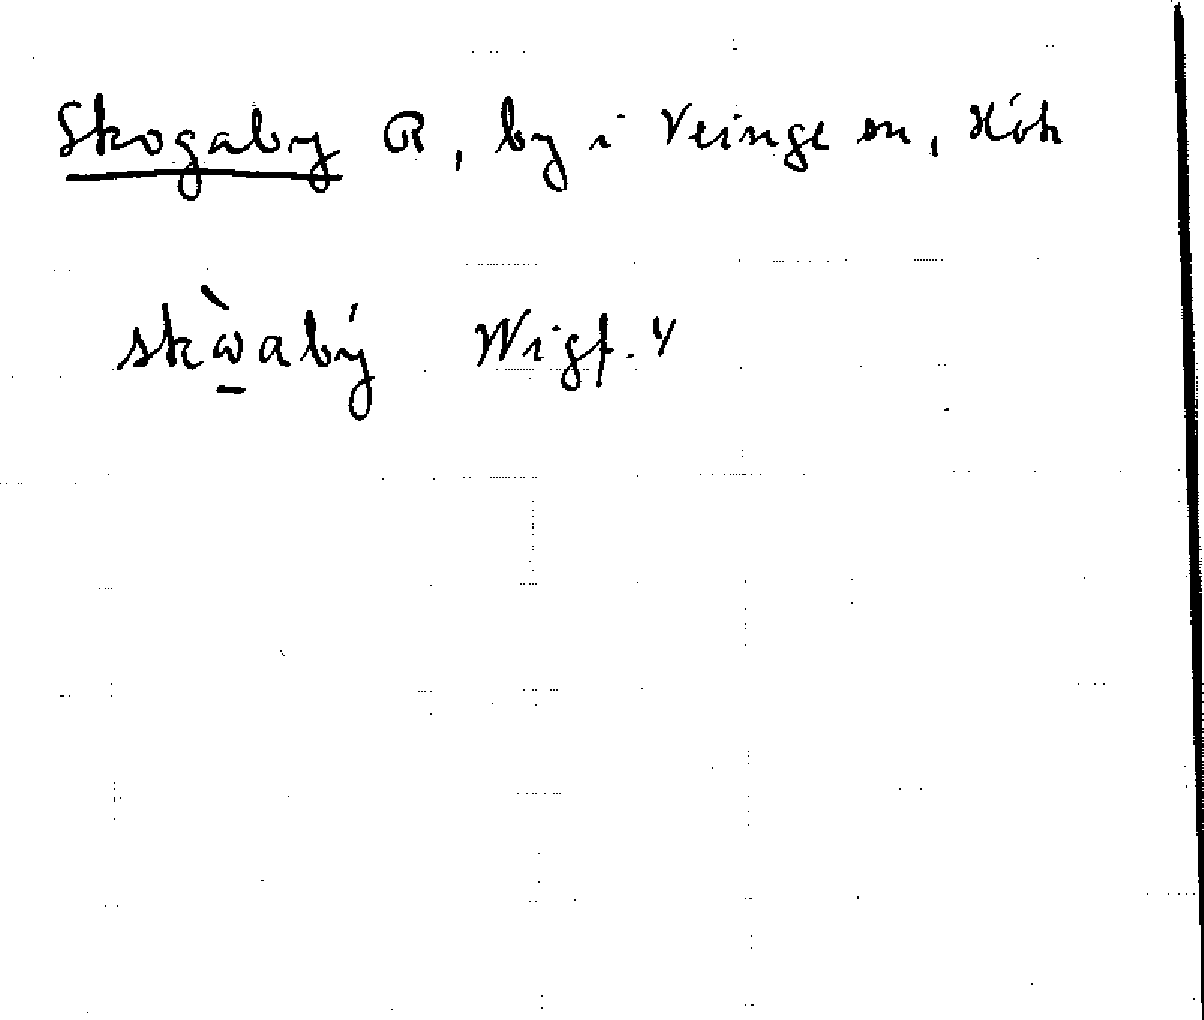 Skogaby R, by i Veinge sn, Hök
skὼ̱abý Wigf. 4